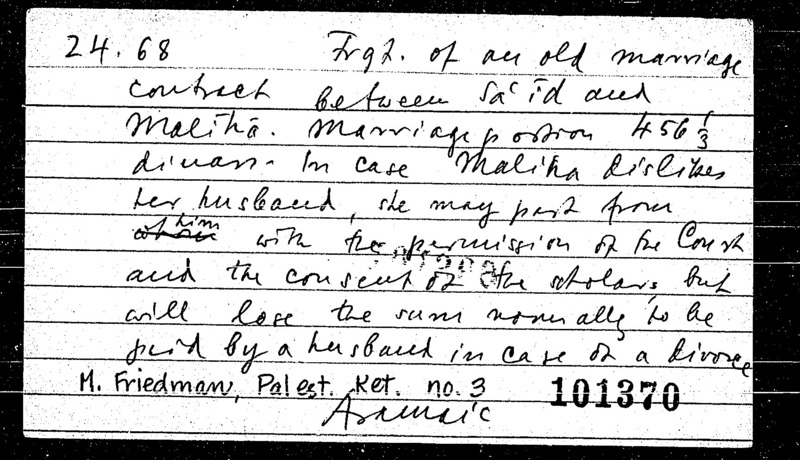 24.68 Frgt. of an old marriage
contract between Sa'id and
Maliha. Marriage portion 456 1/3
dinars. In case Maliha dislikes
her husband, she may part from
him with the permission of the Court
and the consent of the scholars, but
will lose the sum normally to be
paid by a husband in case of a divorce
M. Friedman, Palest. Ket. no. 3 101370
Aramaic